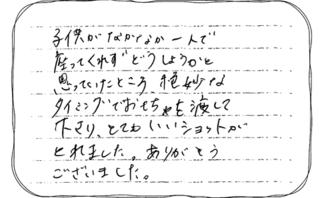 子供がなかなか一人で
座ってくれずどうしようかと
思っていたところ絶妙な
タイミングでおもちゃを渡して
下さり、とてもいいショットが
とれました。ありがとう
ございました。